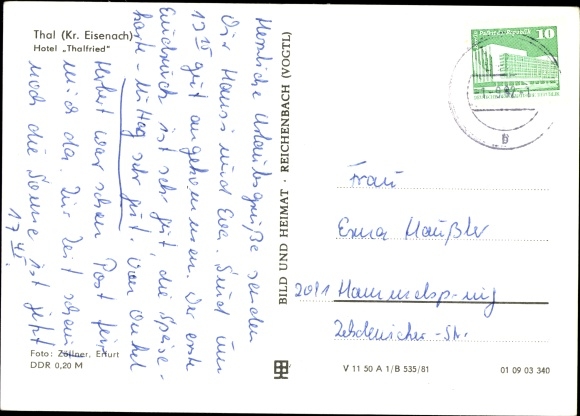 Thal (Kr. Eisenach)
Hotel „Thalfried"
Herzliche Urlaubsgrüße senden
Dir Hanss und Eva. Sind um
13 15 gut angekommen. Der erste
Eindruck ist sehr gut, die Speise-
karte - Mittag sehr gut. Von Onkel
Hubert war schon Post für
mich da. Zur Zeit scheint
noch die Sonne ist jetzt
17 45.
Foto: Zöllner, Erfurt
DDR 0,20 M
BILD UND HEIMAT · REICHENBACH (VOGTL)
Palast der Republik
10
Frau
Erna Häußler
2091 Hammelspring
Zehdenicker - Str.
V 11 50 A 1/B 535/81
01 09 03 340